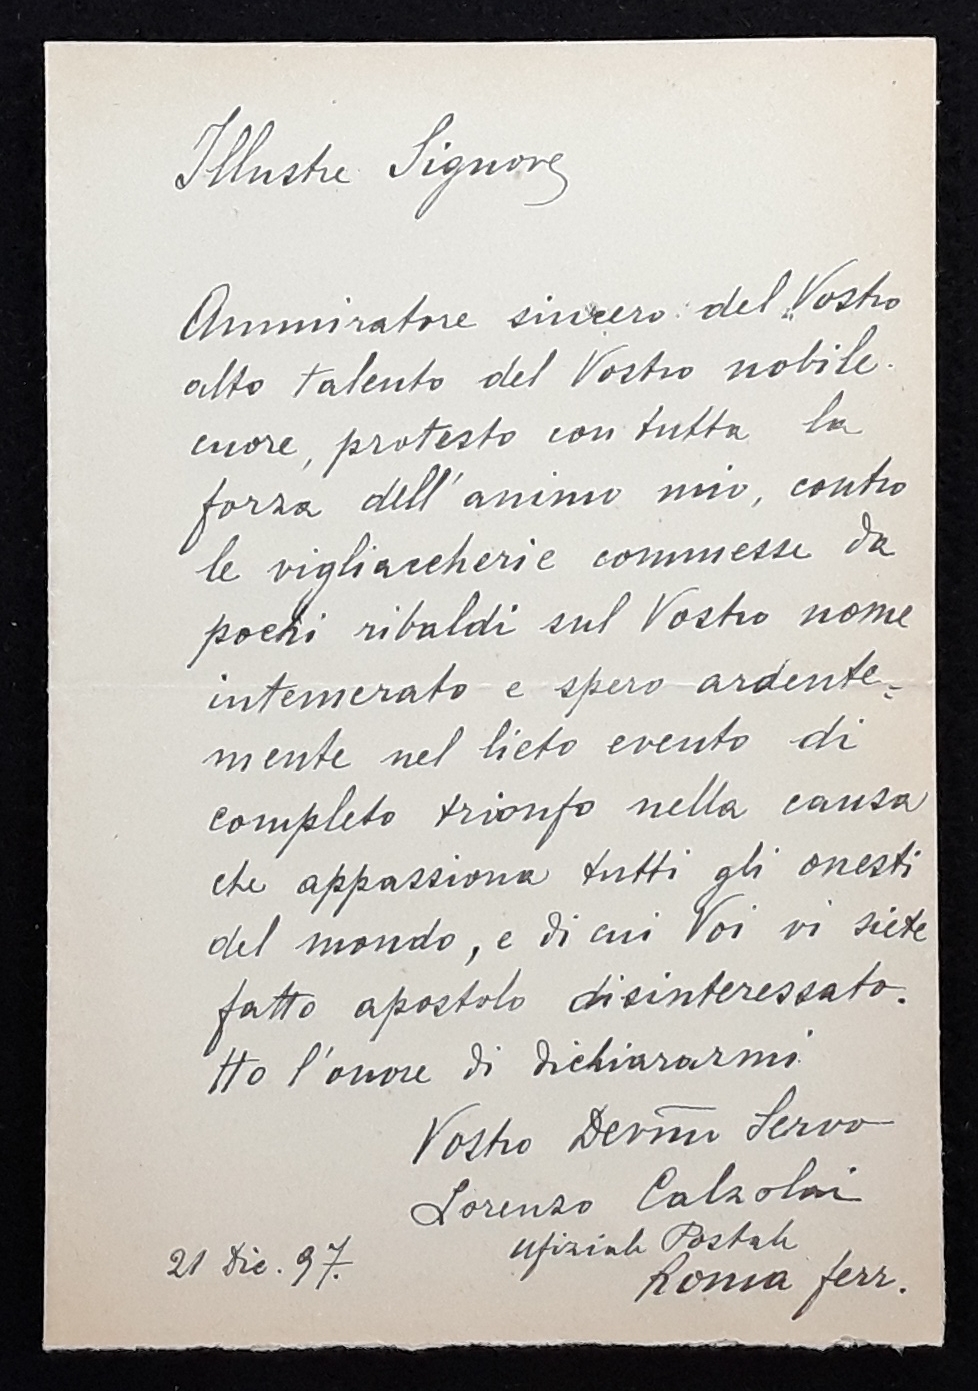 Illustre Signore
Ammiratore sincero del Vostro
alto talento del Vostro nobile
cuore, protesto con tutta la
forza dell'animo mio, contro
le vigliaccherie commesse da
pochi ribaldi sul Vostro nome
intemerato e spero ardente=
mente nel lieto evento di
completo trionfo nella causa
che appassiona tutti gli onesti
del mondo, e di cui Voi vi siete
fatto apostolo disinteressato.
Ho l'onore di dichiararmi
Vostro Devmo Servo
Lorenzo Calzolai
Ufiziale Postale
Roma ferr.
21 Dic. 97.